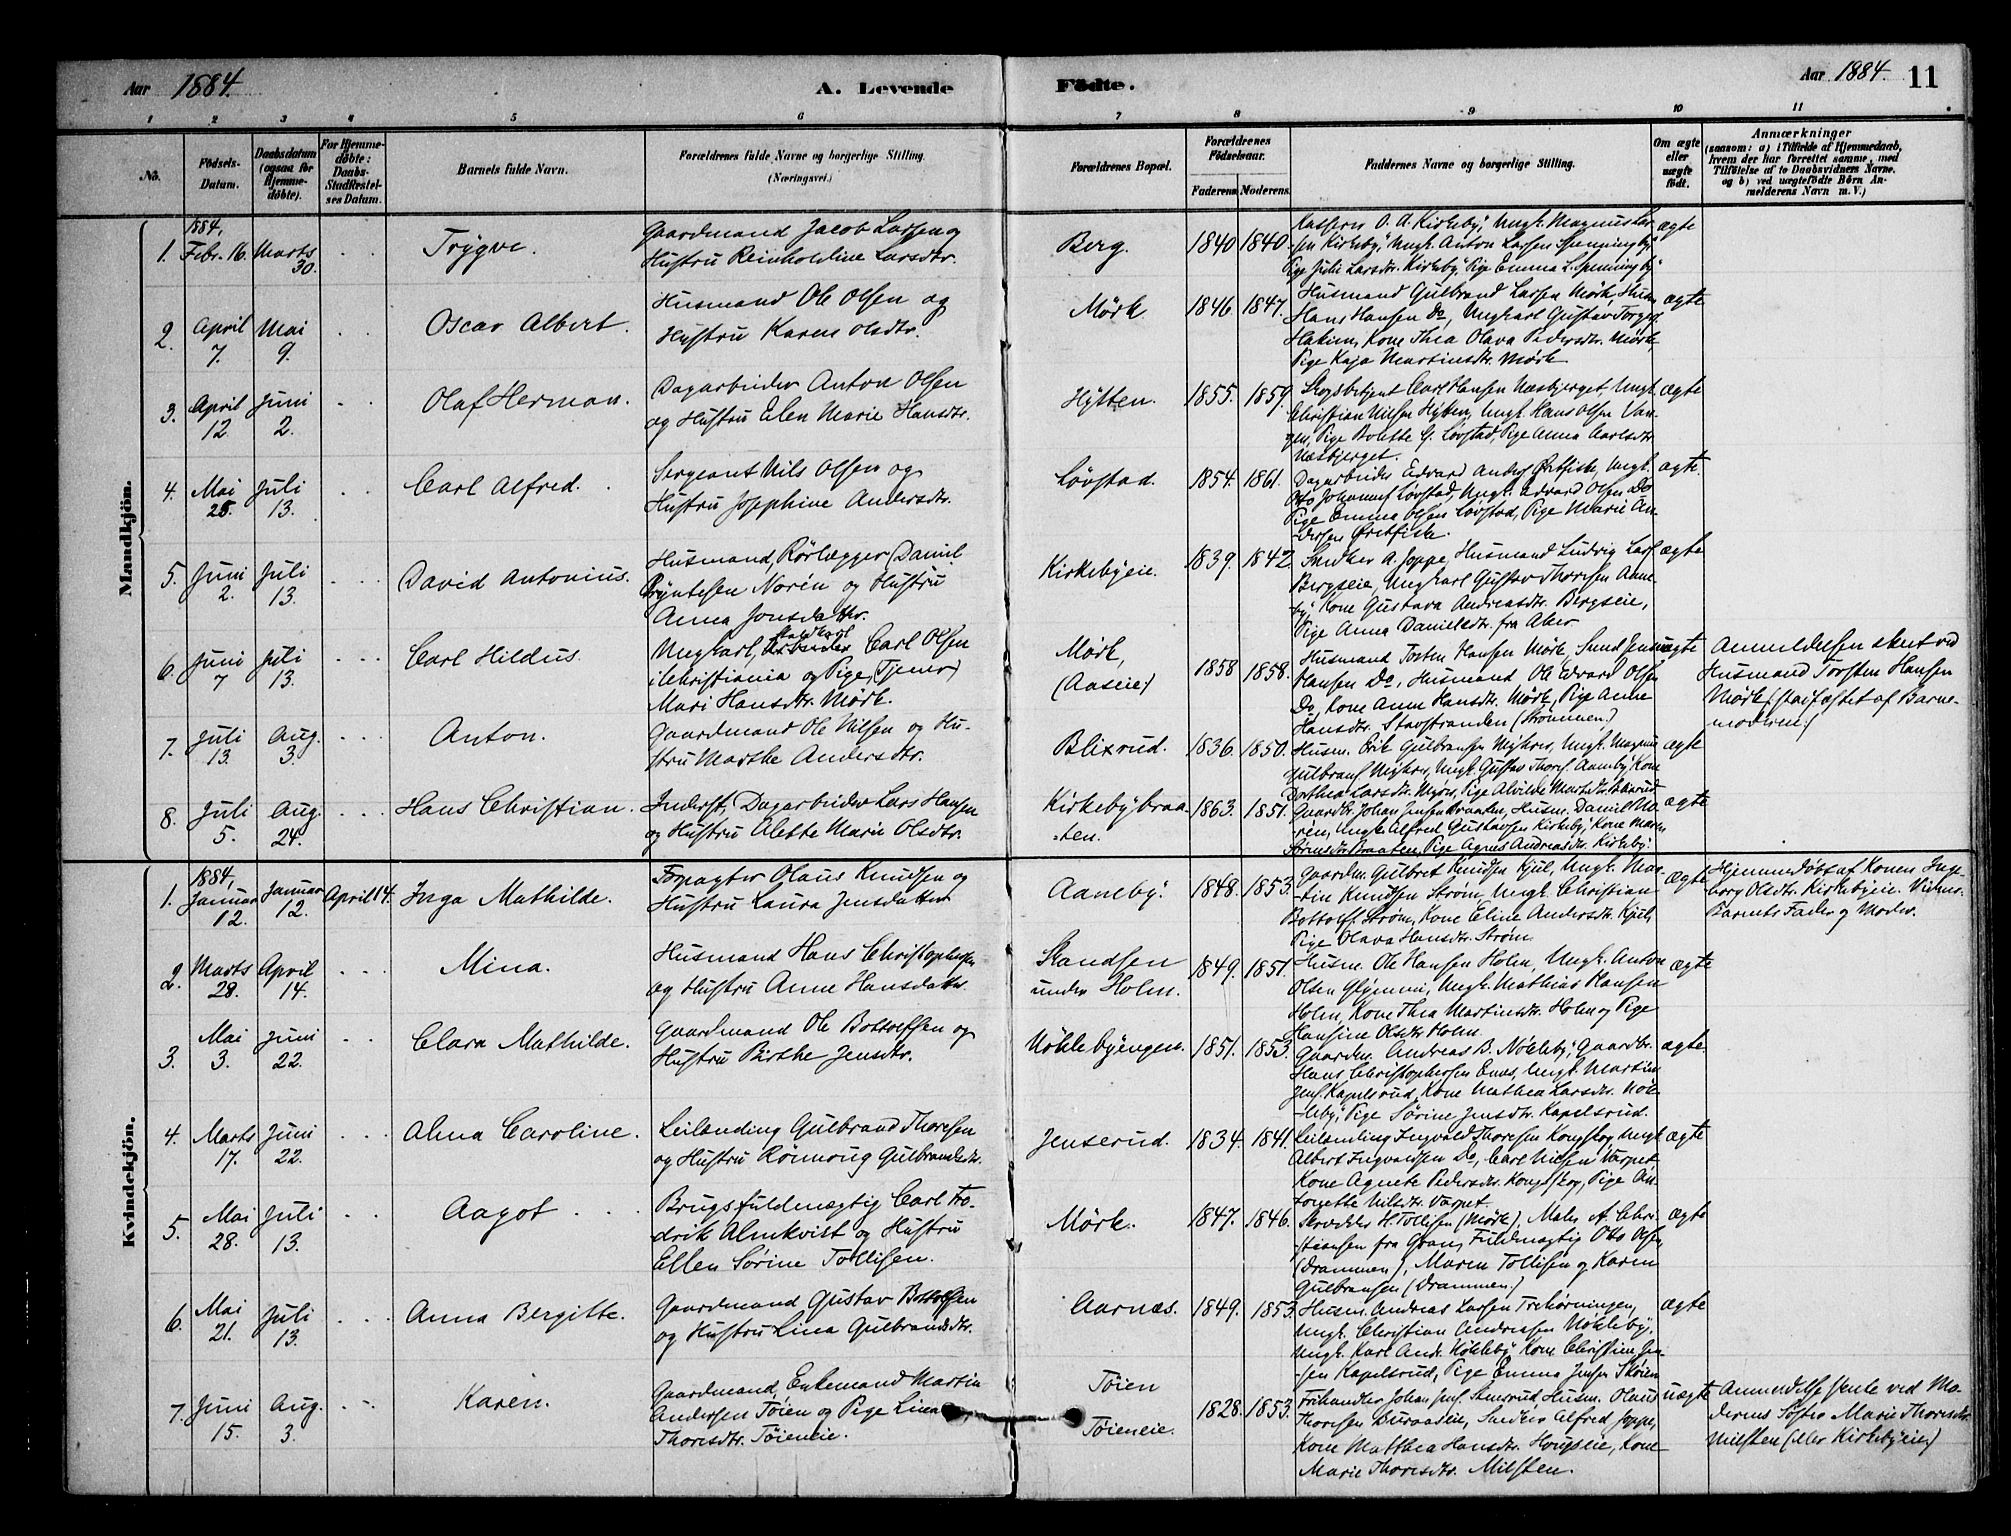 Aar 1884.
A. Levende
Födte.
Aar 1884.
11
1 2 3 4 5 6 7 8 9 10 11
No.
Födsels-
Datum.
Daabsdatum
(ogsaa for
Hjemme-
döbte).
For Hjemme-
döbte:
Daabs-
Stadfæstel-
ses Datum.
Barnets fulde Navn.
Forældrenes fulde Navne og borgerlige Stilling.
(Næringsvei.)
Forældrenes Bopæl.
Forældrenes
Födselsaar.
Faderens. Moderens.
Faddernes Navne og borgerlige Stilling.
Om ægte
eller
uægte
födt.
Anmærkninger
(saasom: a) i Tilfælde af Hjemmedaab,
hvem der har forrettet samme, med
Tilföielse af to Daabsvidners Navne,
og b) ved uægtefödte Börn An-
melderens Navn m. V.)
Mandkjön.
1. 1884, Febr. 16. Marts 30. Trygve.
Gaardmand Jacob Larsen og
Hustru Reinholdine Larsdtr.
Berg. 1840 1840.
O. A. Kirkeby, Ungk. Magnus Lar-
sen Kirkeby, Ungk. Anton Larsen Spenningby,
Pige Julie Larsdtr. Kirkeby, Pige Emma L. Spenningby
ægte
2. April 7. Mai 9. Oscar Albert.
Husmand Ole Olsen og
Hustru Karen Olsdtr.
Mörk 1846. 1847.
Husmand Gulbrand Larsen Mörk, Husm
Hans Hansen Do, Ungkarl Gustav
Kone Thea Olava Pedersdtr. Mörk,
Pige Kaja Martinsdtr. Mörk
ægte
3. April 12. Juni 2. Olaf Herman.
Dagarbeider Anton Olsen
og Hustru Elen Marie Hansdtr.
Hytten. 1855. 1859.
Skogsbetjent Carl Hansen Næsbjerget, Ungk.
Christian Nilsen Hytten, Ungk. Hans Olsen Van-
gen, Pige Bolette G. Lövstad, Pige Anna Carlsdtr.
Næsbjerget.
ægte
4. Mai 25. Juli 13. Carl Alfred.
Sergeant Nils Olsen og
Hustru Josephine Andersdtr.
Lövstad. 1854. 1861.
Dagarbeider Edvard Anders Örtfiske, Ungk.
Otto Johannes Lövstad, Ungk. Edvard Olsen Do
Pige Emma Olsen Lövstad, Pige Marie An-
dersen Örtfiske.
ægte.
5. Juni 2. Juli 13. David Antonius.
Husmand, Rörlægger Daniel
Bryntesen Norén og Hustru
Anna Jonsdatter.
Kirkebyeie. 1839. 1842
A. Joppe, Husmand Ludvig Lars
Bergseie, Ungkarl Gustav Thoresen Aane-
by, Kone Gustava Andreasdtr. Bergseie,
Pige Anna Danielsdtr. fra Aker
ægte
6. Juni 7 Juli 13. Carl Hildus.
Ungkarl, Staldkarl Carl Olsen
i Christiania og Pige, (Tjener)
Mari Hansdtr. Mörk.
Mörk,
(Aaseie)
1858 1858.
Husmand Torsten Hansen Mörk, Jens
Hansen Do, Husmand Ole Edvard Olsen
Do, Kone Anne Hansdtr. Mörk, Pige Anne
Hansdtr. Stavstranden (Strömmen)
uægte
Anmeldelsen skeet ved
Husmand Torsten Hansen
Mörk (stadfæstet af Barne-
moderen)
7. Juli 13. Aug. 3. Anton.
Gaardmand Ole Nilsen og Hu-
stru Marthe Andersdtr.
Blixrud. 1836. 1850.
Husm. Erik Gulbransen Ungk. Magnus
Gulbrans Ungk. Gustav Thores. Aaneby, Kone
Dorthea Larsdtr. Pige Alvilde
ægte
8. Juli 5. Aug. 24. Hans Christian.
Inderst, Dagarbeider Lars Hansen
og Hustru Alette Marie Olsdtr.
Kirkebybraa-
ten.
1863. 1851.
Gaardbr. Johan Jensen Braaten, Husm. Daniel No-
rén, Ungk. Alfred Gustavsen Kirkeby, Kone Maren
Sörensdtr. Braaten, Pige Agnes Andreasdtr. Kirkeby.
ægte
Kvindekjön.
1. 1884, Januar 12. Januar 12. April 14. Inga Mathilde.
Forpagter Olaus Knudsen og
Hustru Laura Jensdatter
Aaneby. 1848. 1853.
Gaardm. Gulbret Knudsen Kjul, Ungk. Mar-
tin Knudsen Ström, Ungk. Christian
Bottolfs. Ström, Kone Eline Andersdtr. Kjul,
Pige Olava Hansdtr. Ström
ægte
Hjemmedöbt af Konen Inge-
borg Olsdtr. Kirkebyeie. Vidner
Barnets Fader og Moder.
2. Marts 28. April 14. Mina.
Husmand Hans Christophersen
og Hustru Anne Hansdatter.
Skandsen
under Holm.
1849. 1851.
Husm. Ole Hansen Holm, Ungk. Anton
Olsen Ungk. Mathias Hansen
Holm, Kone Thea Martinsdtr. Holm og Pige
Hansine Olsdtr. Holm
ægte
3. Mai 3. Juni 22. Clara Mathilde.
Gaardmand Ole Bottolfsen og
Hustru Birthe Jensdtr.
Nöklebyengen. 1851. 1853.
Gaardm. Andreas B. Nökleby, Gaardbr.
Hans Christophersen Enes, Ungk. Martin
Jens. Kapelsrud, Kone Mathea Larsdtr. Nök-
leby, Pige Sörine Jensdtr. Kapelsrud.
ægte
4. Marts 17. Juni 22. Alma Caroline.
Leilænding Gulbrand Thoresen
og Hustru Rönnoug Gulbrandsdtr.
Jenserud. 1834. 1841.
Leilænding Ingvald Thoresen Kongskog, Ungk
Albert Ingvaldsen Do, Carl Nilsen Varpet
Kone Agnete Pedersdtr. Kongskog, Pige An-
tonette Nilsdtr. Varpet.
ægte
5. Mai 28. Juli 13. Aagot
Brugsfuldmægtig Carl Fre-
drik Almkvist og Hustru
Ellen Sörine Tollefsen.
Mörk. 1847. 1846.
Skrædder H. Tollefsen (Mörk), Maler A. Chri-
stiansen fra Gran, Fuldmægtig Otto Olsen
(Drammen), Maren Tollefsen og Karen
Gulbransen (Drammen)
ægte
6. Mai 21. Juli 13. Anna Bergitte.
Gaardmand Gustav Bottolfsen
og Hustru Lina Gulbrandsdtr.
Aarnæs. 1849. 1853.
Husm. Andreas Larsen Trehörningen,
Ungk. Christian Andreasen Nökleby,
Ungk. Karl Andr. Nökleby Kone Christine Jen-
sen Kapelsrud, Pige Emma Jensen Sköien
ægte
7. Juni 15. Aug. 3. Karen.
Gaardmand, Enkemand Martin
Andersen Töien og Pige Lina
Thoresdtr. Töieneie.
Töien
Töieneie.
1828. 1853.
Frihandler Johan Jens. Husm. Olaus
Thoresen Alfred Joppe,
Kone Matthea Hansdtr. Kone
Marie Thoresdtr. Milsten.
uægte
Anmeldelse skete ved Mo-
derens Söster Marie Thoresdtr.
Milsten (eller Kirkebyeie)